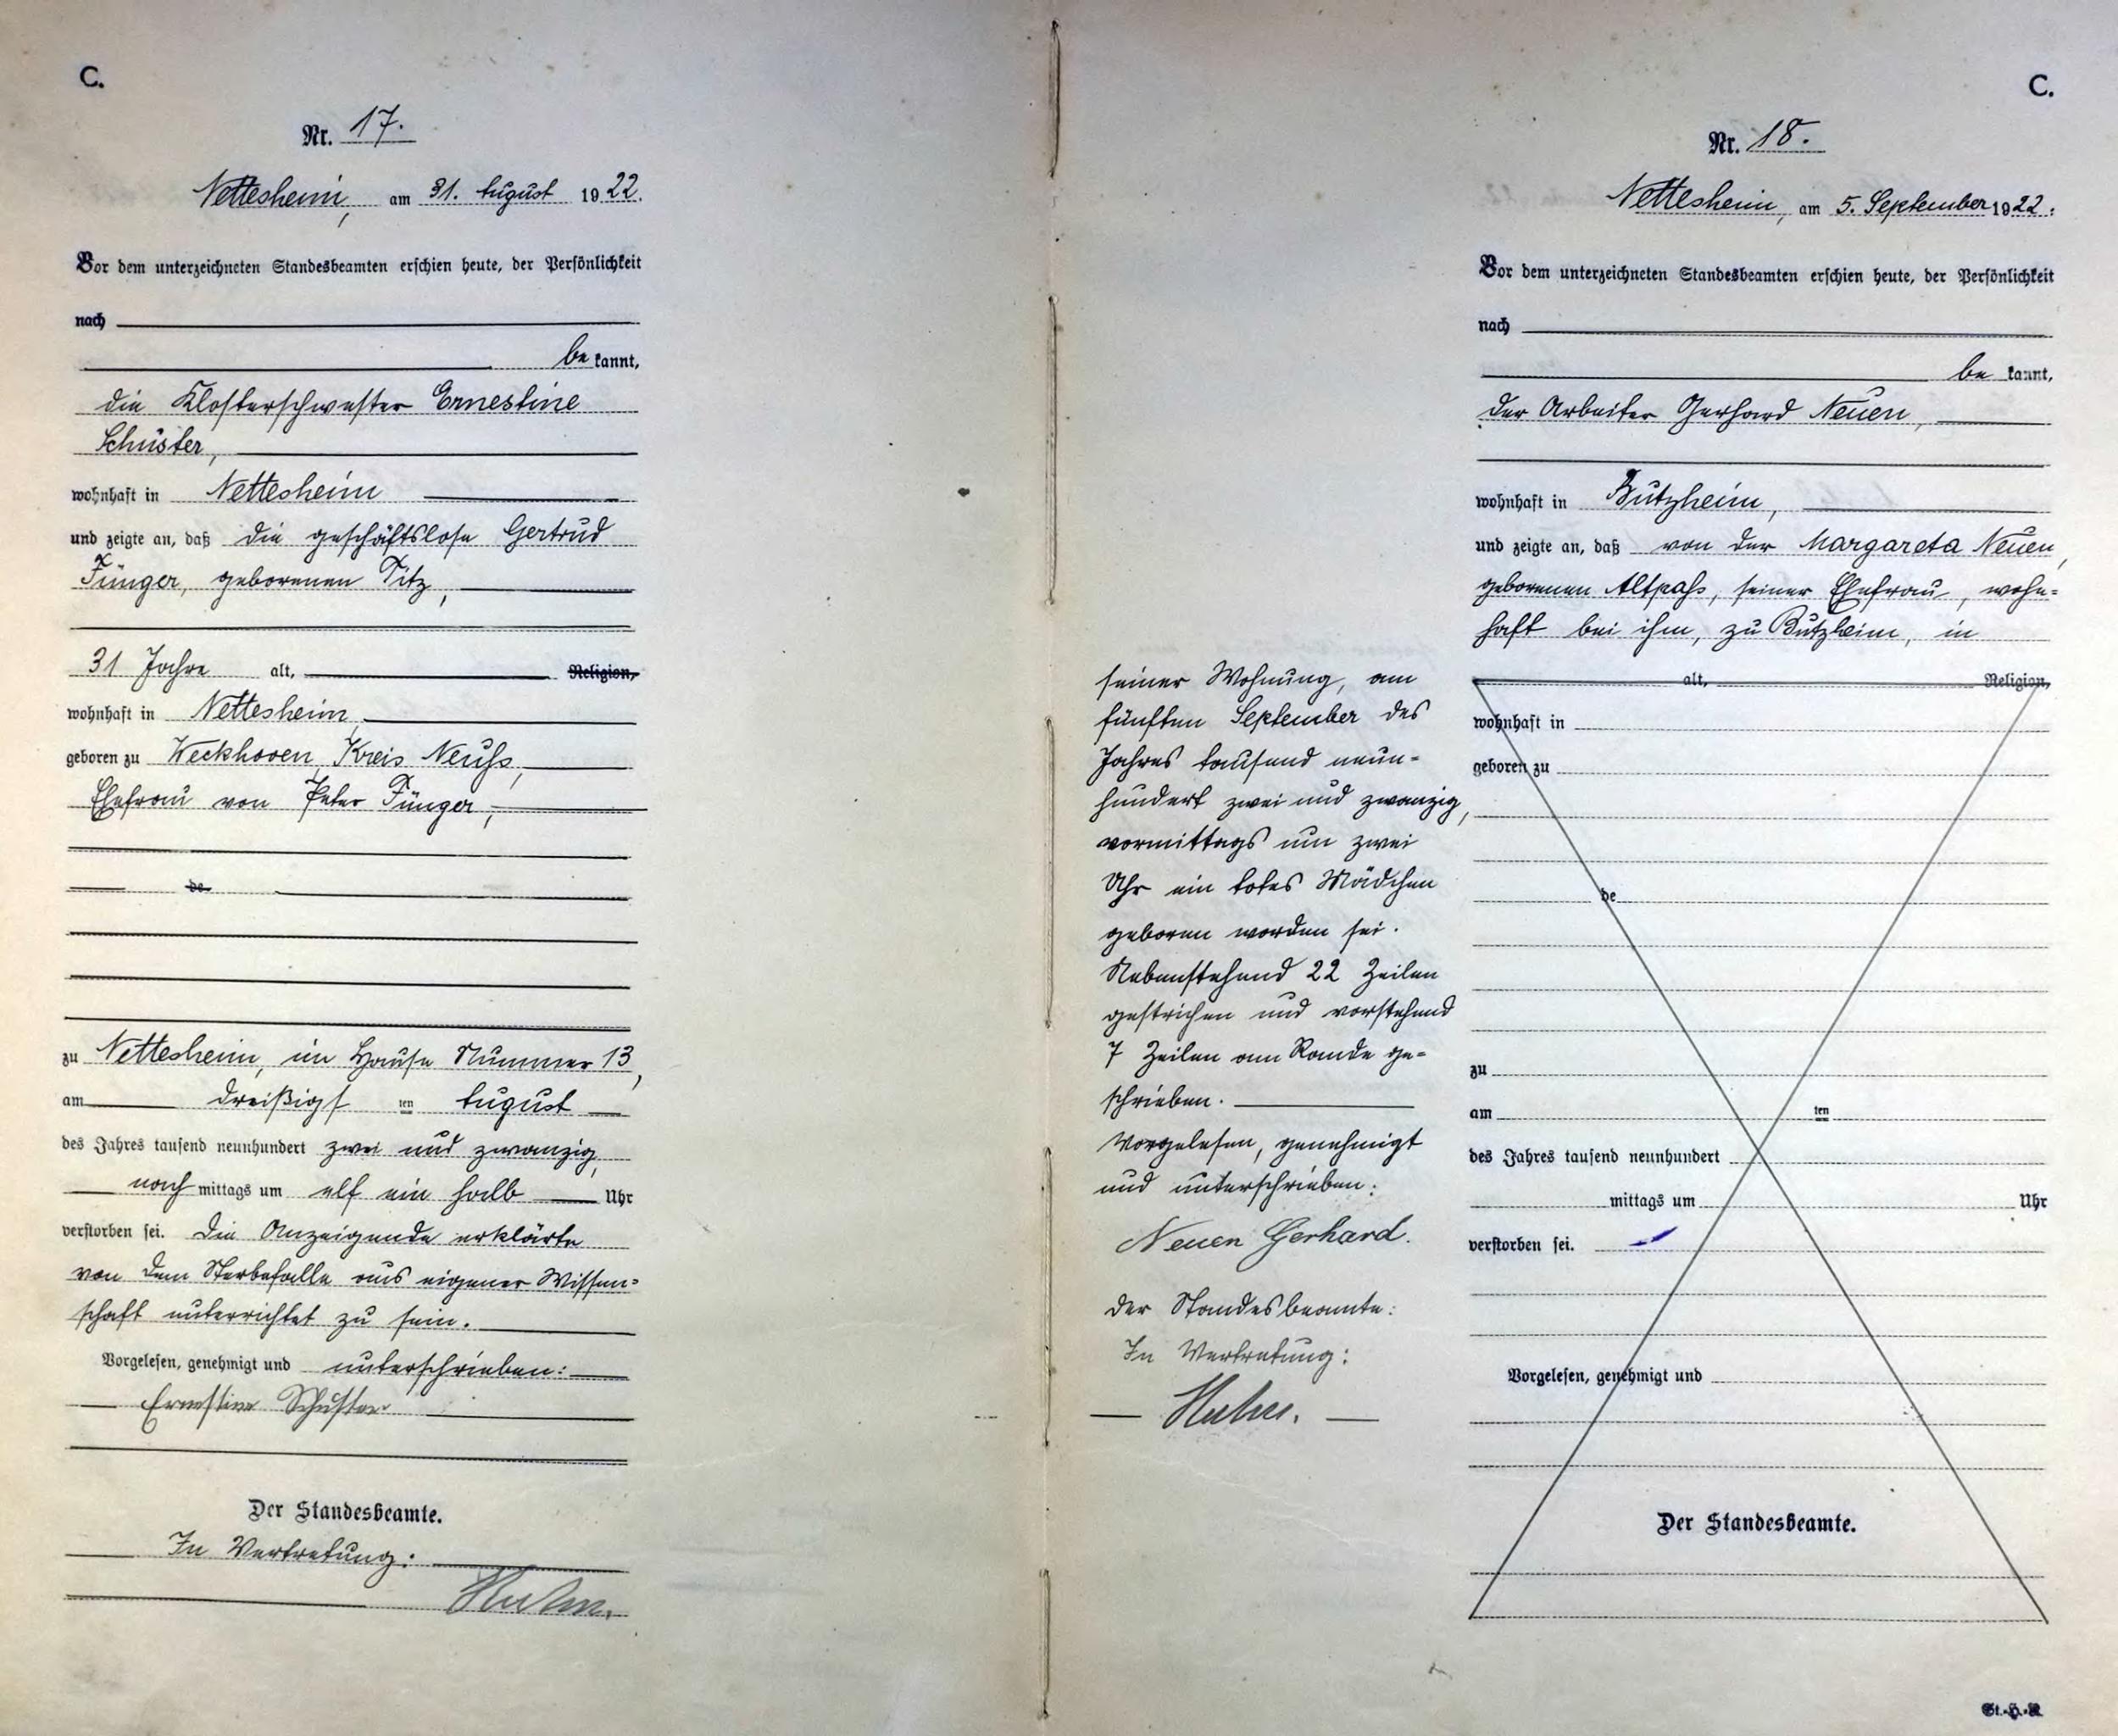 C.
Nr. 17.
Nettesheim, am 31. August 1922.
Vor dem unterzeichneten Standesbeamten erschien heute, der Persönlichkeit
nach
be kannt,
die Klosterschwester Ernestine
Schuster,
wohnhaft in Nettesheim
und zeigte an, daß die geschäftslose Gertrud
Fünger, geborenen Titz,
31 Jahre alt, Religion,
wohnhaft in Nettesheim
geboren zu Weckhoven, Kreis Neuß,
Ehefrau von Peter Fünger,
de
zu Nettesheim, im Hause Nummer 13,
am dreißigsten August
des Jahres tausend neunhundert zwei und zwanzig,
nach mittags um elf ein halb Uhr
verstorben sei. Die Anzeigende erklärte
von dem Sterbefalle aus eigener Wissen=
schaft unterrichtet zu sein.
Vorgelesen, genehmigt und unterschrieben:
Ernestine Schuster
Der Standesbeamte.
In Vertretung:
C.
Nr. 18.
Nettesheim, am 5. September 1922.
Vor dem unterzeichneten Standesbeamten erschien heute, der Persönlichkeit
nach
be kannt,
der Arbeiter Gerhard Neuen,
wohnhaft in Butzheim,
und zeigte an, daß von der Margareta Neuen,
geborenen Altpaß, seiner Ehefrau, wohn=
haft bei ihm, zu Butzheim, in
seiner Wohnung, am
fünften September des
Jahres tausend neun=
hundert zwei und zwanzig,
vormittags um zwei
Uhr ein totes Mädchen
geboren worden sei.
Nebenstehend 22 Zeilen
gestrichen und vorstehend
7 Zeilen am Rande ge=
schrieben.
Vorgelesen, genehmigt
und unterschrieben:
Neuen Gerhard.
der Standesbeamte:
In Vertretung:
alt, Religion,
wohnhaft in
geboren zu
de
zu
am ten
des Jahres tausend neunhundert
mittags um Uhr
verstorben sei.
Vorgelesen, genehmigt und
Der Standesbeamte.